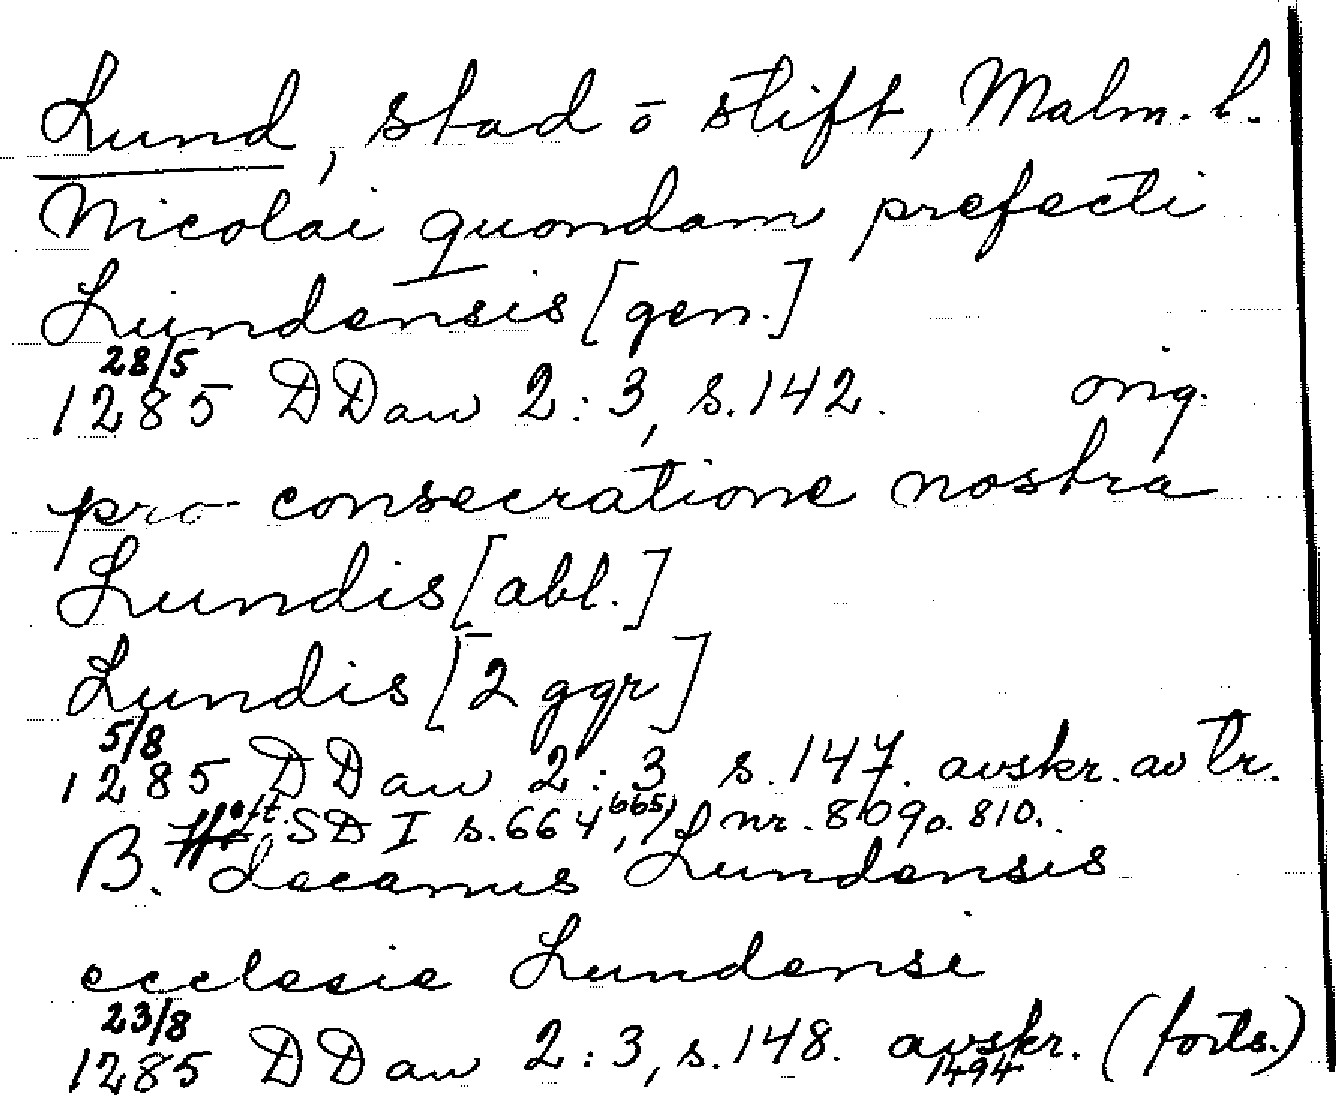 Lund, stad o stift, Malm. l.
Nicolai quondam prefecti
Lundensis [gen.]
28/5
1285 DDan 2:3, s. 142. orig.
pro consecratione nostra
Lundis [abl.]
Lundis [2 ggr]
5/8
1285 DDan 2:3 s. 147. avskr. av tr.
SD I s. 664, 665, nr. 809 o. 810.
B. decanus Lundensis
ecclesie Lundensi
23/8
1285 DDan 2:3, s. 148. avskr. (forts.)
1494